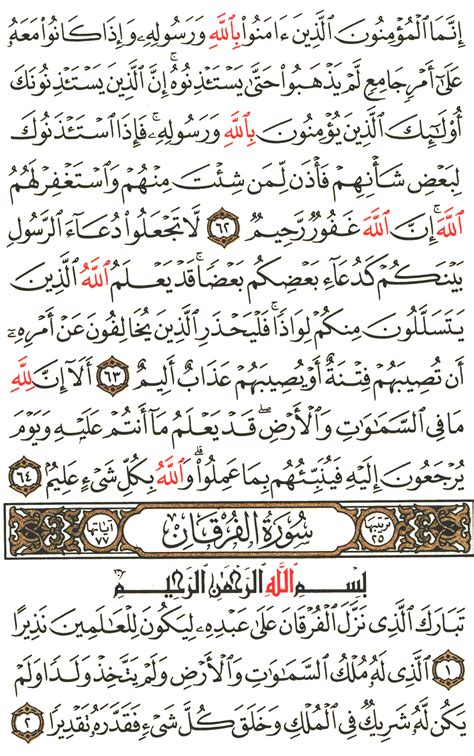 إِنَّمَا ٱلْمُؤْمِنُونَ ٱلَّذِينَ ءَامَنُوا۟ بِٱللَّهِ وَرَسُولِهِۦ وَإِذَا كَانُوا۟ مَعَهُۥ
عَلَىٰٓ أَمْرٍ جَامِعٍ لَّمْ يَذْهَبُوا۟ حَتَّىٰ يَسْتَـْٔذِنُوهُ ۚ إِنَّ ٱلَّذِينَ يَسْتَـْٔذِنُونَكَ
أُو۟لَـٰٓئِكَ ٱلَّذِينَ يُؤْمِنُونَ بِٱللَّهِ وَرَسُولِهِۦ ۚ فَإِذَا ٱسْتَـْٔذَنُوكَ
لِبَعْضِ شَأْنِهِمْ فَأْذَن لِّمَن شِئْتَ مِنْهُمْ وَٱسْتَغْفِرْ لَهُمُ
ٱللَّهَ ۚ إِنَّ ٱللَّهَ غَفُورٌ رَّحِيمٌ ٦٢ لَّا تَجْعَلُوا۟ دُعَآءَ ٱلرَّسُولِ
بَيْنَكُمْ كَدُعَآءِ بَعْضِكُم بَعْضًا ۚ قَدْ يَعْلَمُ ٱللَّهُ ٱلَّذِينَ
يَتَسَلَّلُونَ مِنكُمْ لِوَاذًا ۚ فَلْيَحْذَرِ ٱلَّذِينَ يُخَالِفُونَ عَنْ أَمْرِهِۦٓ
أَن تُصِيبَهُمْ فِتْنَةٌ أَوْ يُصِيبَهُمْ عَذَابٌ أَلِيمٌ ٦٣ أَلَآ إِنَّ لِلَّهِ
مَا فِى ٱلسَّمَـٰوَٰتِ وَٱلْأَرْضِ ۖ قَدْ يَعْلَمُ مَآ أَنتُمْ عَلَيْهِ وَيَوْمَ
يُرْجَعُونَ إِلَيْهِ فَيُنَبِّئُهُم بِمَا عَمِلُوا۟ ۗ وَٱللَّهُ بِكُلِّ شَىْءٍ عَلِيمٌۢ ٦٤
ترتيبها ٢٥ سُورَةُ الفُرْقَانِ آياتها ٧٧
بِسْمِ ٱللَّهِ ٱلرَّحْمَـٰنِ ٱلرَّحِيمِ
تَبَارَكَ ٱلَّذِى نَزَّلَ ٱلْفُرْقَانَ عَلَىٰ عَبْدِهِۦ لِيَكُونَ لِلْعَـٰلَمِينَ نَذِيرًا
١ ٱلَّذِى لَهُۥ مُلْكُ ٱلسَّمَـٰوَٰتِ وَٱلْأَرْضِ وَلَمْ يَتَّخِذْ وَلَدًا وَلَمْ
يَكُن لَّهُۥ شَرِيكٌ فِى ٱلْمُلْكِ وَخَلَقَ كُلَّ شَىْءٍ فَقَدَّرَهُۥ تَقْدِيرًا ٢